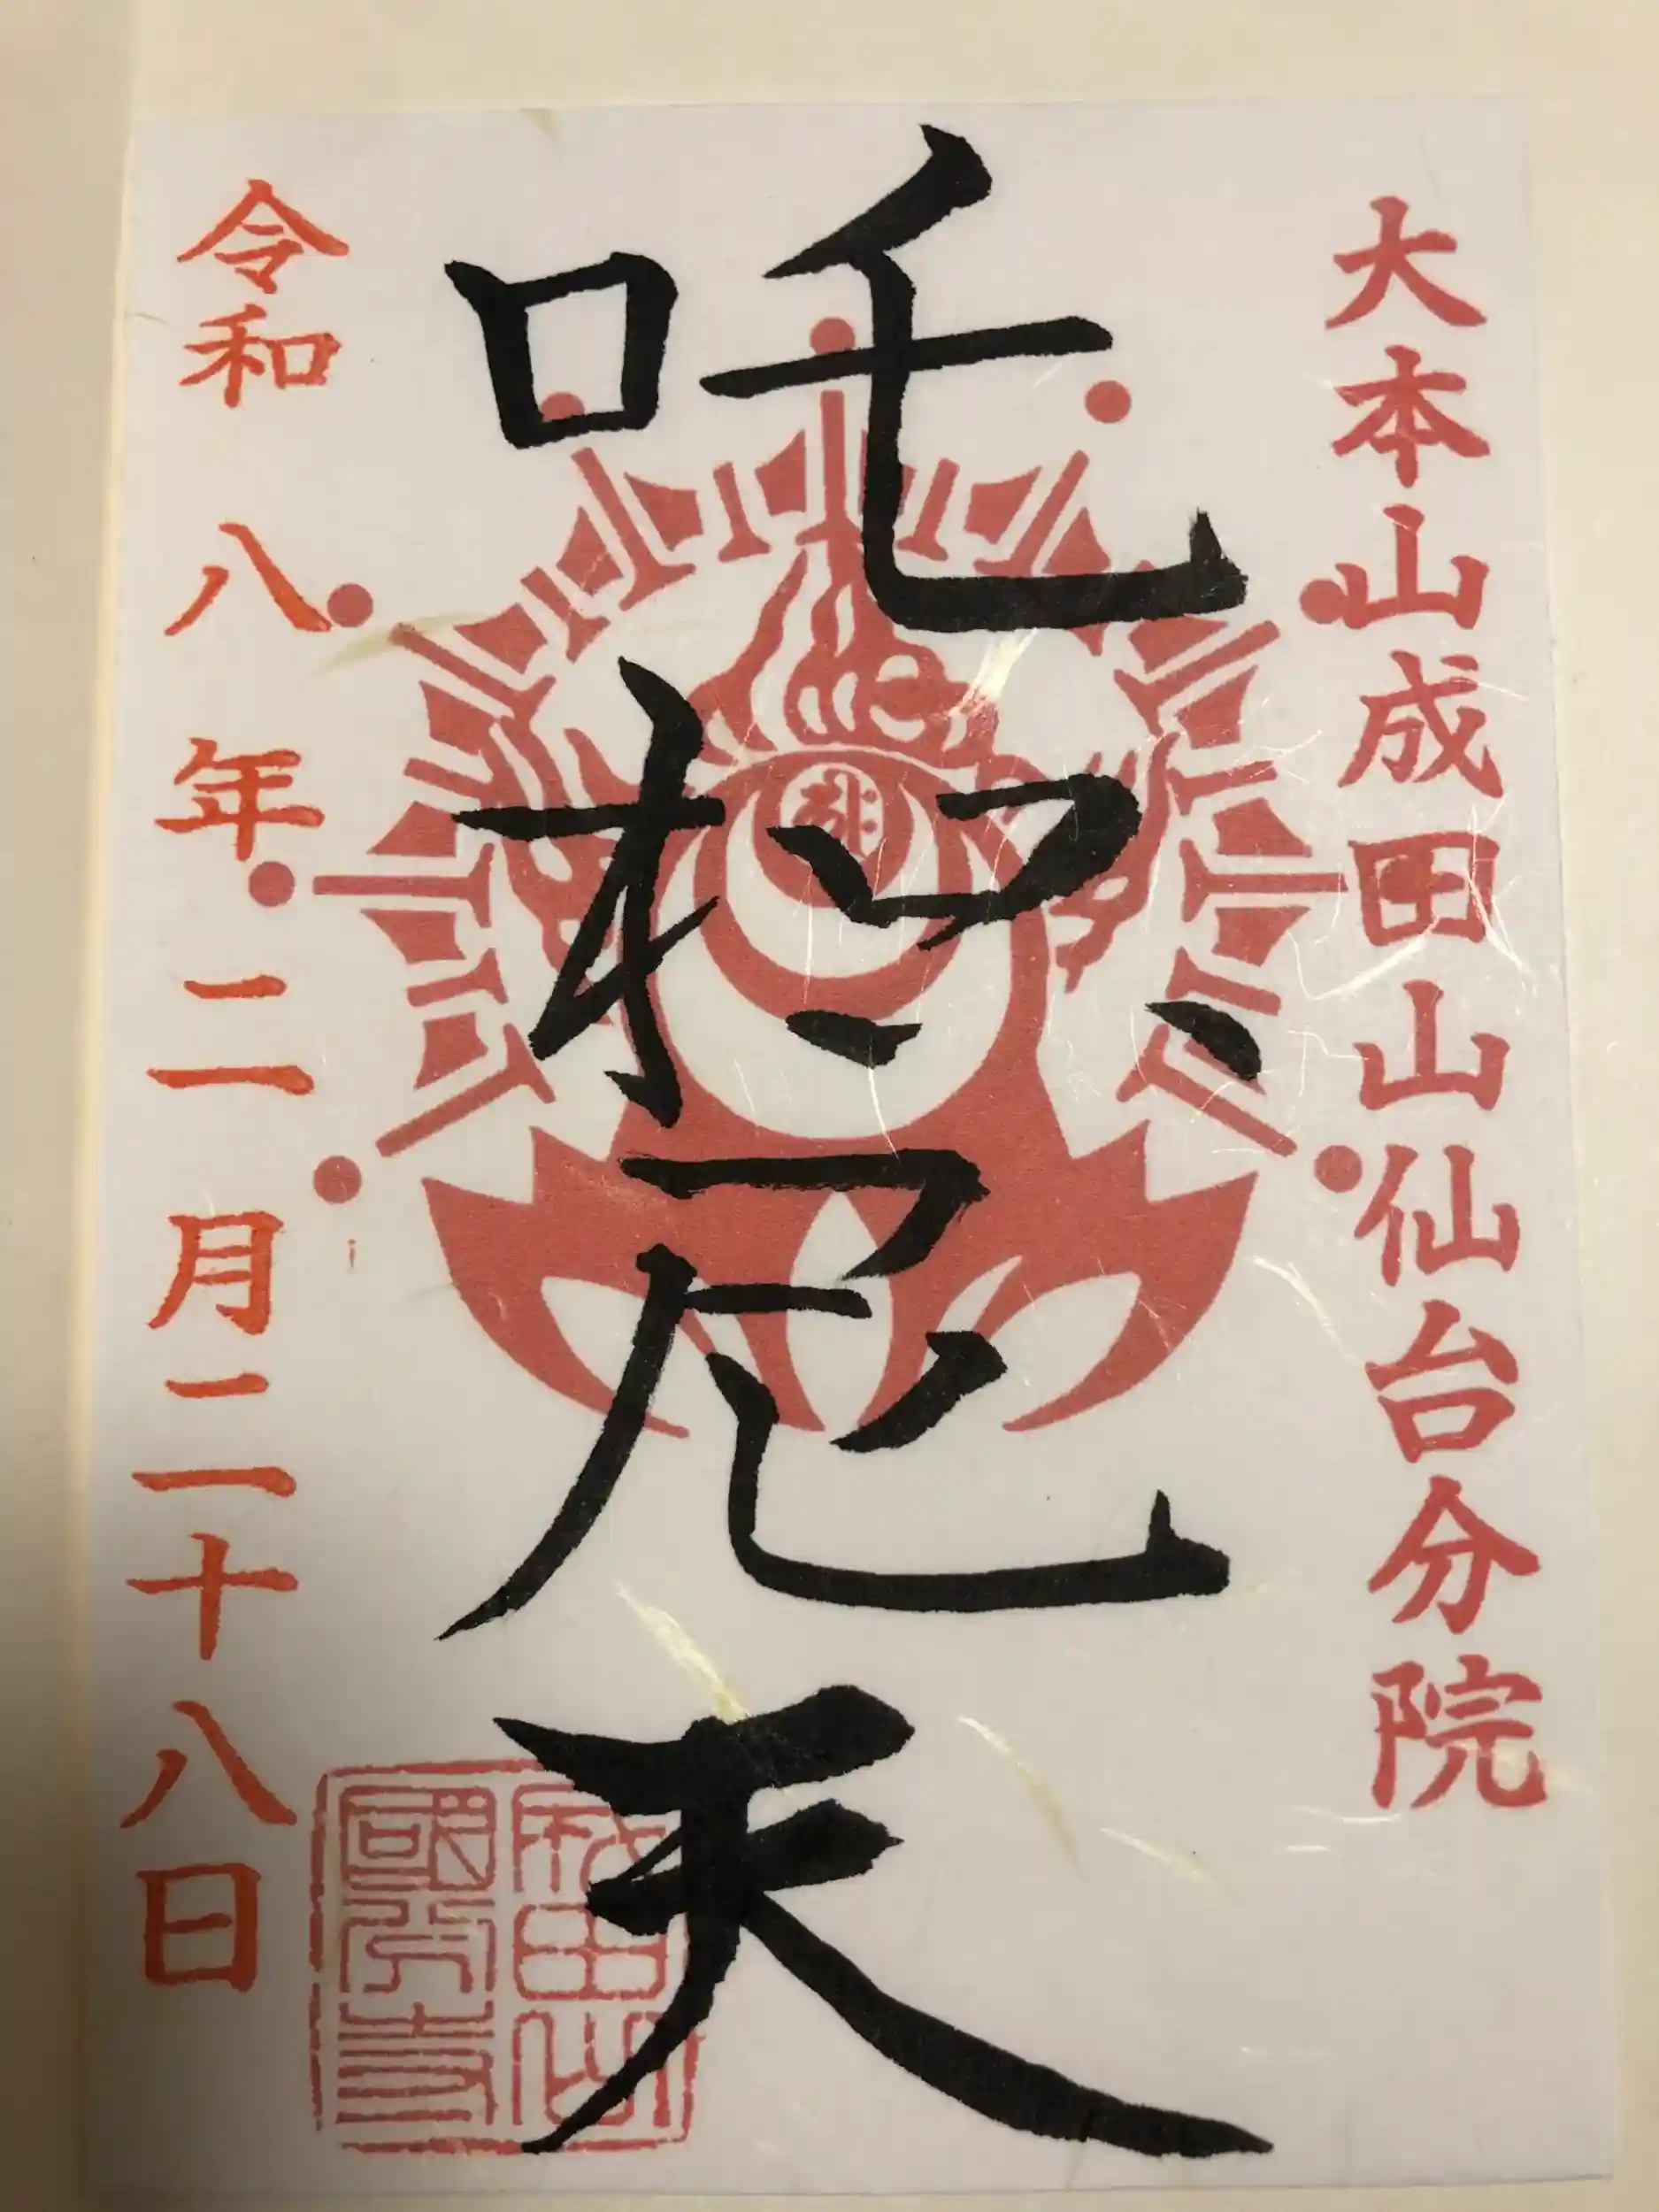 大本山成田山仙台分院
吒枳尼天
令和八年二月二十八日